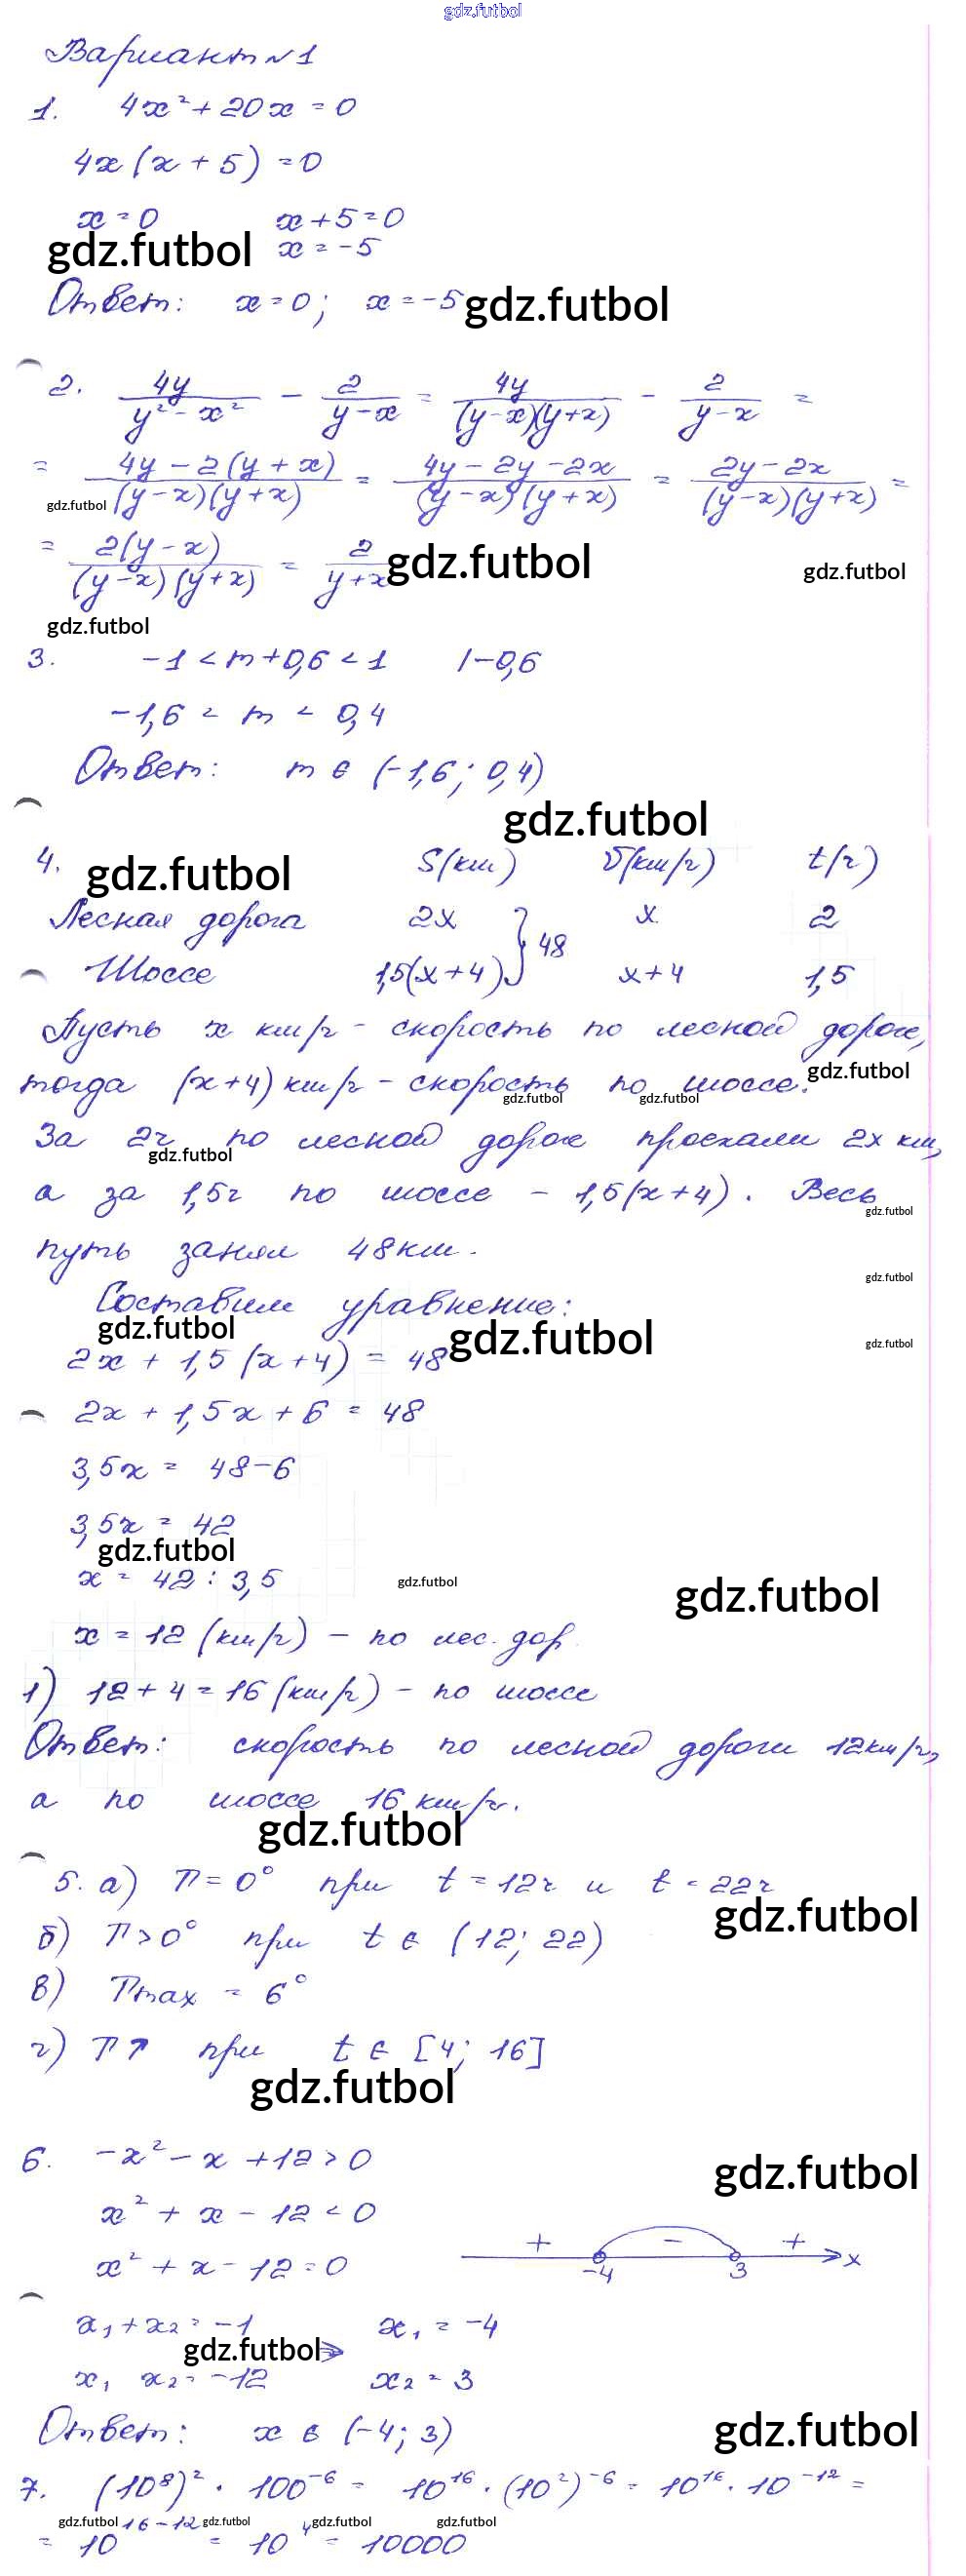 gdz.futbol
Вариант №1
1. 4x² + 20x = 0
4x(x + 5) = 0
x = 0 x + 5 = 0
gdz.futbol x = -5
Ответ: x = 0; x = -5 gdz.futbol
2. 4y/(y² - x²) - 2/(y - x) = 4y/((y - x)(y + x)) - 2/(y - x) =
= (4y - 2(y + x))/((y - x)(y + x)) = (4y - 2y - 2x)/((y - x)(y + x)) = (2y - 2x)/((y - x)(y + x)) =
gdz.futbol
= 2(y - x)/((y - x)(y + x)) = 2/(y + x) gdz.futbol gdz.futbol
gdz.futbol
3. -1 < m + 0,6 < 1 | -0,6
-1,6 < m < 0,4
Ответ: m ∈ (-1,6; 0,4)
gdz.futbol
4. gdz.futbol S(км) υ(км/ч) t(ч)
Лесная дорога 2x } 48 x 2
Шоссе 1,5(x+4) x+4 1,5
Пусть x км/ч - скорость по лесной дороге,
gdz.futbol
тогда (x+4) км/ч - скорость по шоссе.
gdz.futbol gdz.futbol
За 2ч по лесной дороге проехали 2x км,
gdz.futbol
а за 1,5ч по шоссе - 1,5(x+4). Весь
gdz.futbol
путь занял 48км.
gdz.futbol
Составим уравнение:
gdz.futbol gdz.futbol gdz.futbol
2x + 1,5(x+4) = 48
2x + 1,5x + 6 = 48
3,5x = 48-6
3,5x = 42
gdz.futbol
x = 42 : 3,5 gdz.futbol gdz.futbol
x = 12 (км/ч) - по лес. дор.
1) 12 + 4 = 16 (км/ч) - по шоссе
Ответ: скорость по лесной дороги 12км/ч,
а по шоссе 16 км/ч.
gdz.futbol
5. а) T = 0° при t = 12ч и t = 22ч
gdz.futbol
б) T > 0° при t ∈ (12; 22)
в) Tmax = 6°
г) T↗ при t ∈ [4; 16]
gdz.futbol
6. -x² - x + 12 > 0 gdz.futbol
x² + x - 12 < 0
x² + x - 12 = 0 + -4 - 3 + x
x₁ + x₂ = -1 x₁ = -4
gdz.futbol ⇒
x₁ x₂ = -12 x₂ = 3
Ответ: x ∈ (-4; 3) gdz.futbol
7. (10⁸)² · 100⁻⁶ = 10¹⁶ · (10²)⁻⁶ = 10¹⁶ · 10⁻¹² =
gdz.futbol gdz.futbol gdz.futbol gdz.futbol
= 10¹⁶⁻¹² = 10⁴ = 10000